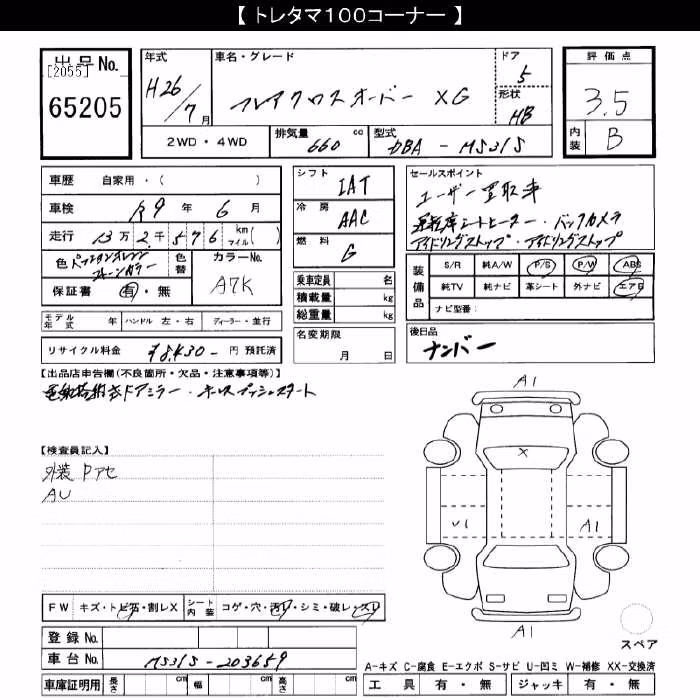 【 トレタマ100コーナー 】
出品No.
[2055]
65205
年式
H26/7月
車名・グレード
フレアクロスオーバー XG
ドア
5
形状
HB
評価点
3.5
内装
B
2WD・4WD
排気量
660 cc
型式
DBA - MS31S
車歴 自家用・( )
車検 R9 年 6 月
走行 13万 2千 5 7 6 km マイル( )
色
色替
カラーNo.
A7K
保証書 有・無
モデル年式 年
ハンドル 左・右
ディーラー・並行
リサイクル料金 ¥8,430- 円 預託済
シフト
IAT
冷房
AAC
燃料
G
乗車定員 名
積載量 kg
総重量 kg
名変期限
月 日
セールスポイント
ユーザー買取車
運転席シートヒーター・バックカメラ
アイドリングストップ・アイドリングストップ
装備品
S/R 純A/W P/S P/W ABS
純TV 純ナビ 革シート 外ナビ エアB
ナビ型番:
後日品
ナンバー
【出品店申告欄(不良箇所・欠品・注意事項等)】
電動格納式ドアミラー・キーレスプッシュスタート
【検査員記入】
外装 Pアセ
AU
A1
X
U1
A1
A1
スペア
FW キズ・トビ石・割レX
シート内装 コゲ・穴・汚レ・シミ・破レ・スレ
登録 No.
車台 No. MS31S-203659
車庫証明用 長さ cm 幅 cm 高さ cm
A-キズ C-腐食 E-エクボ S-サビ U-凹ミ W-補修 XX-交換済
工具 有・無 ジャッキ 有・無